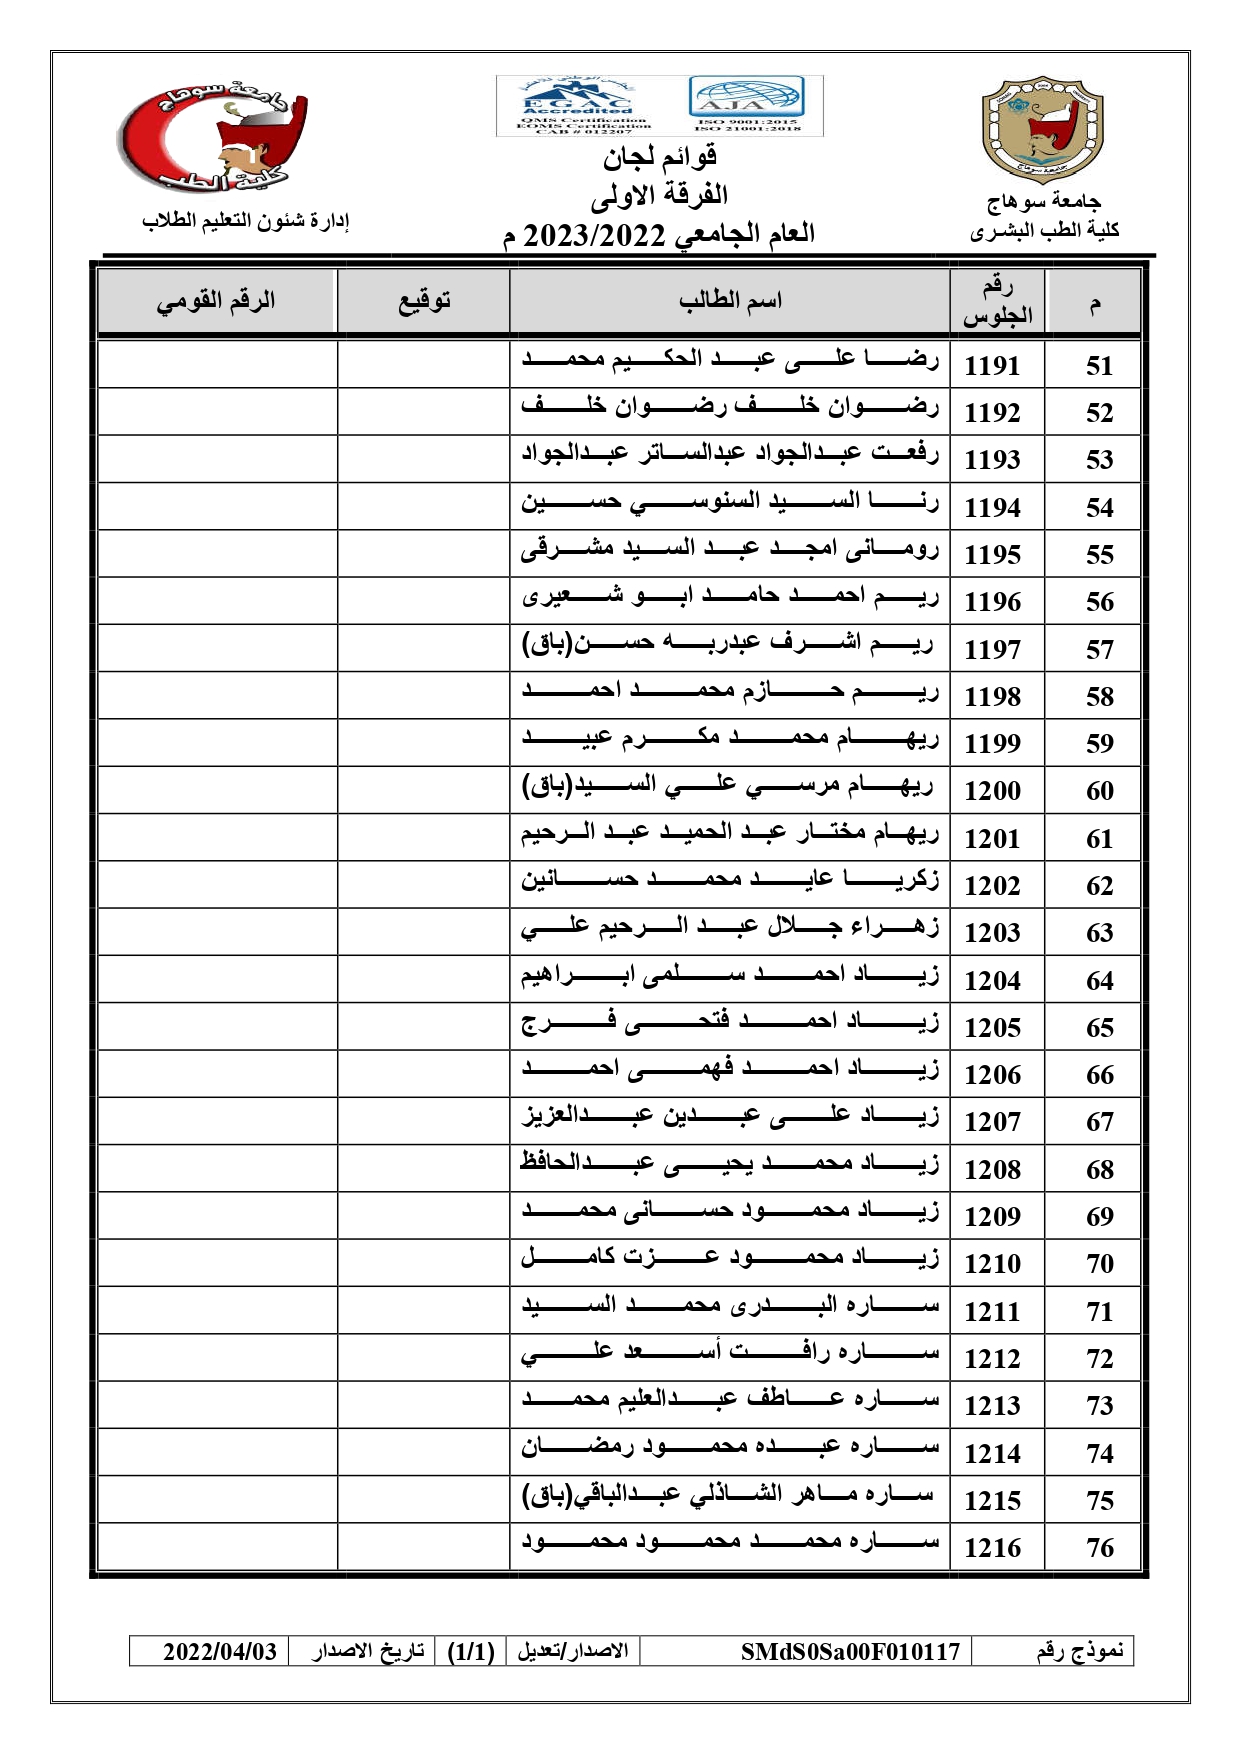 جامعة سوهاج
كلية الطب
EGAC
Accredited
QMS Certification
EOMS Certification
CAB # 012207
AJA
ISO 9001:2015
ISO 21001:2018
جامعة سوهاج
قوائم لجان
الفرقة الاولى
العام الجامعي 2023/2022 م
جامعة سوهاج
كلية الطب البشرى
إدارة شئون التعليم الطلاب
م رقم الجلوس اسم الطالب توقيع الرقم القومي
51 1191 رضا على عبد الحكيم محمد
52 1192 رضوان خلف رضوان خلف
53 1193 رفعت عبدالجواد عبدالساتر عبدالجواد
54 1194 رنا السيد السنوسي حسين
55 1195 رومانى امجد عبد السيد مشرقى
56 1196 ريم احمد حامد ابو شعيرى
57 1197 ريم اشرف عبدربه حسن(باق)
58 1198 ريم حازم محمد احمد
59 1199 ريهام محمد مكرم عبيد
60 1200 ريهام مرسي علي السيد(باق)
61 1201 ريهام مختار عبد الحميد عبد الرحيم
62 1202 زكريا عايد محمد حسانين
63 1203 زهراء جلال عبد الرحيم علي
64 1204 زياد احمد سلمى ابراهيم
65 1205 زياد احمد فتحى فرج
66 1206 زياد احمد فهمى احمد
67 1207 زياد على عبدين عبدالعزيز
68 1208 زياد محمد يحيى عبدالحافظ
69 1209 زياد محمود حسانى محمد
70 1210 زياد محمود عزت كامل
71 1211 ساره البدرى محمد السيد
72 1212 ساره رافت أسعد علي
73 1213 ساره عاطف عبدالعليم محمد
74 1214 ساره عبده محمود رمضان
75 1215 ساره ماهر الشاذلي عبدالباقي(باق)
76 1216 ساره محمد محمود محمود
نموذج رقم SMdS0Sa00F010117 الاصدار/تعديل (1/1) تاريخ الاصدار 2022/04/03